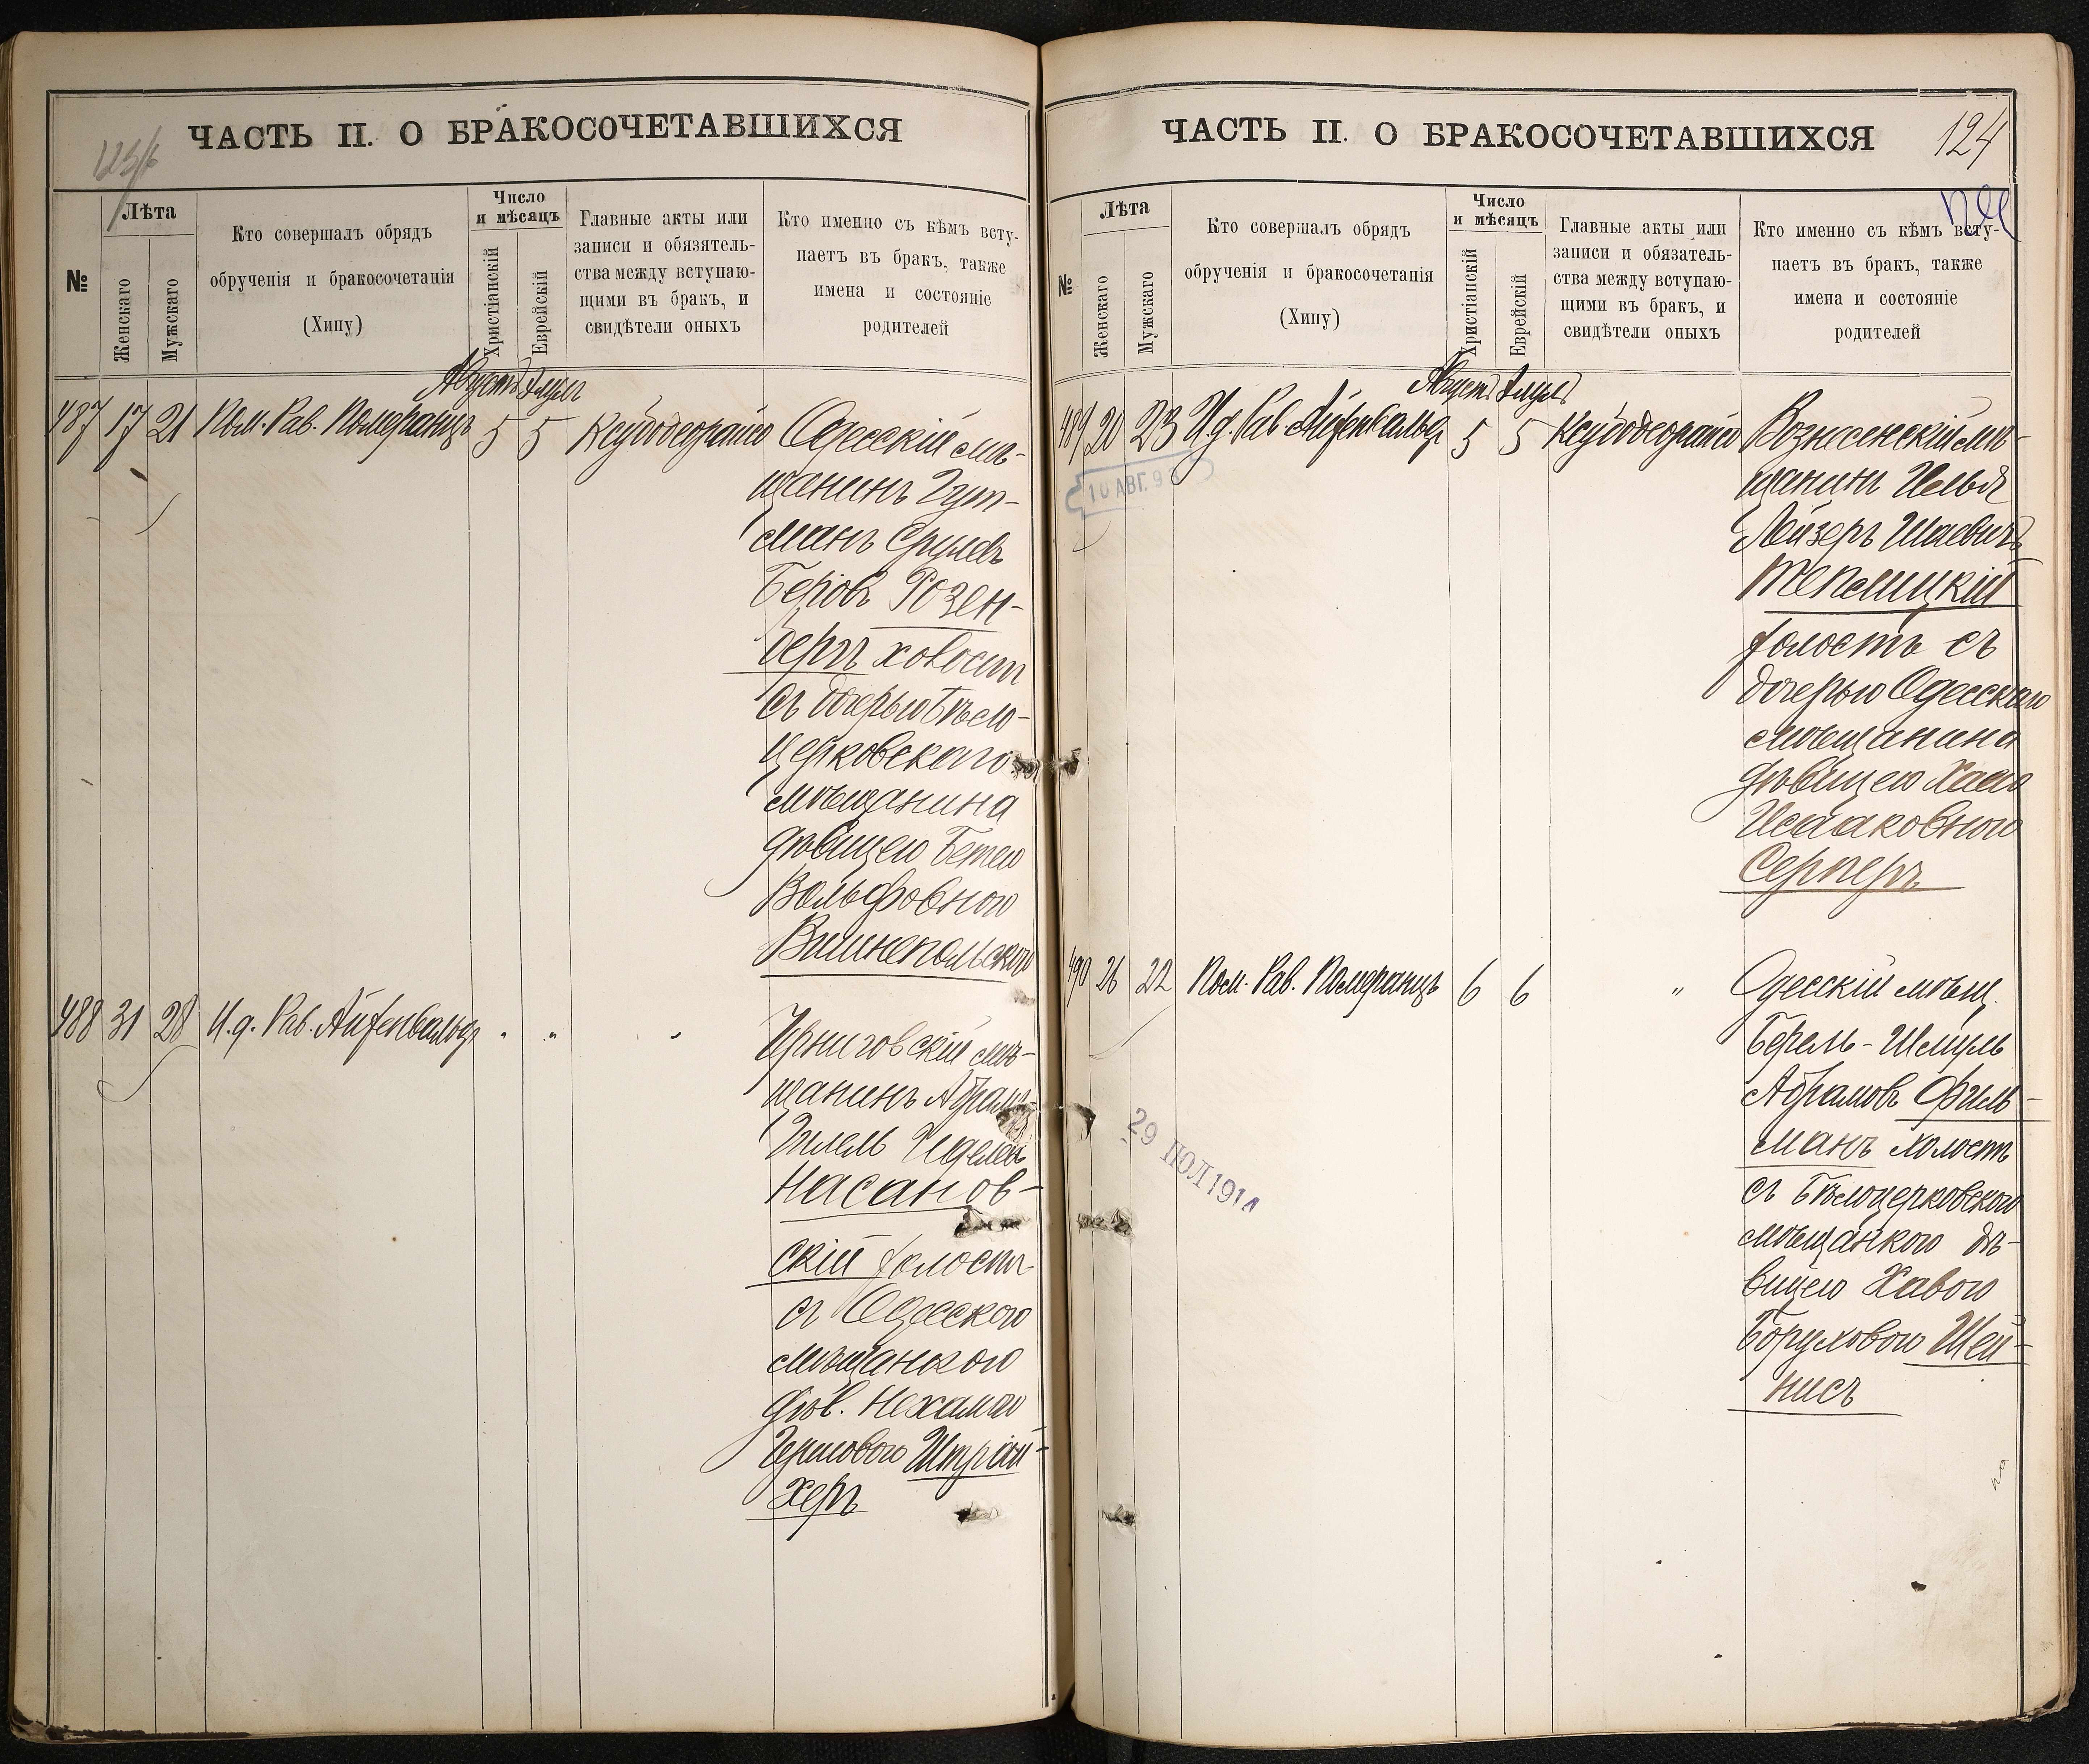 ЧАСТЬ II. О БРАКОСОЧЕТАВШИХСЯ
№
Лѣта
Женскаго
Мужскаго
Кто совершалъ обрядъ
обрученія и бракосочетанія
(Хипу)
Число
и мѣсяцъ
Христіанскій
Еврейскій
Главные акты или
записи и обязятель-
ства между вступаю-
щими въ бракъ, и
свидѣтели оныхъ
Кто именно съ кѣмъ всту-
паетъ въ бракъ, также
имена и состояніе
родителей
Августъ Элулъ
487 17 21 Пом. Рав. Померанцъ 5 5 Ксубодеорайсо Одесскій мѣ-
щанинъ Гут-
манъ Срулевъ
Беровъ Розен-
бергъ холостъ
съ дочерью Бѣло-
церковского
мѣщанина
дѣвицею Бетею
Вольфовною
Вишнепольскою
488 31 28 И.д. Рав. Айзенвальдъ " " "
Черниговскій мѣ-
щанинъ Абрамъ
Гилель Иделевъ
Насанов-
скій холостъ
съ Одесского
мѣщанкою
дѣв. Нехамою
Гершовою Штрай-
херъ
ЧАСТЬ II. О БРАКОСОЧЕТАВШИХСЯ
124
№
Лѣта
Женскаго
Мужскаго
Кто совершалъ обрядъ
обрученія и бракосочетанія
(Хипу)
Число
и мѣсяцъ
Христіанскій
Еврейскій
Главные акты или
записи и обязатель-
ства между вступаю-
щими въ бракъ, и
свидѣтели оныхъ
Кто именно съ кѣмъ всту-
паетъ въ бракъ, также
имена и состояніе
родителей
Августъ Элулъ
489 20 23 И.д. Рав. Айзенвальдъ 5 5 Ксубодеорайсо Вознесенскій мѣ-
щанинъ Иелья
Лейзеръ Шаевичъ
Теплицкій
холостъ съ
дочерью Одесского
мѣщанина
дѣвицею Хаею
Исааковною
Серперъ
10 АВГ. 9
490 26 22 Пом. Рав. Померанцъ 6 6 " Одесскій мѣщ.
Берель-Шмуль
Абрамовъ Филь-
манъ холостъ
съ Бѣлоцерковского
мѣщанкою дѣ-
вицею Хавою
Боруховою Шей-
нисъ
29 ІЮЛ 191